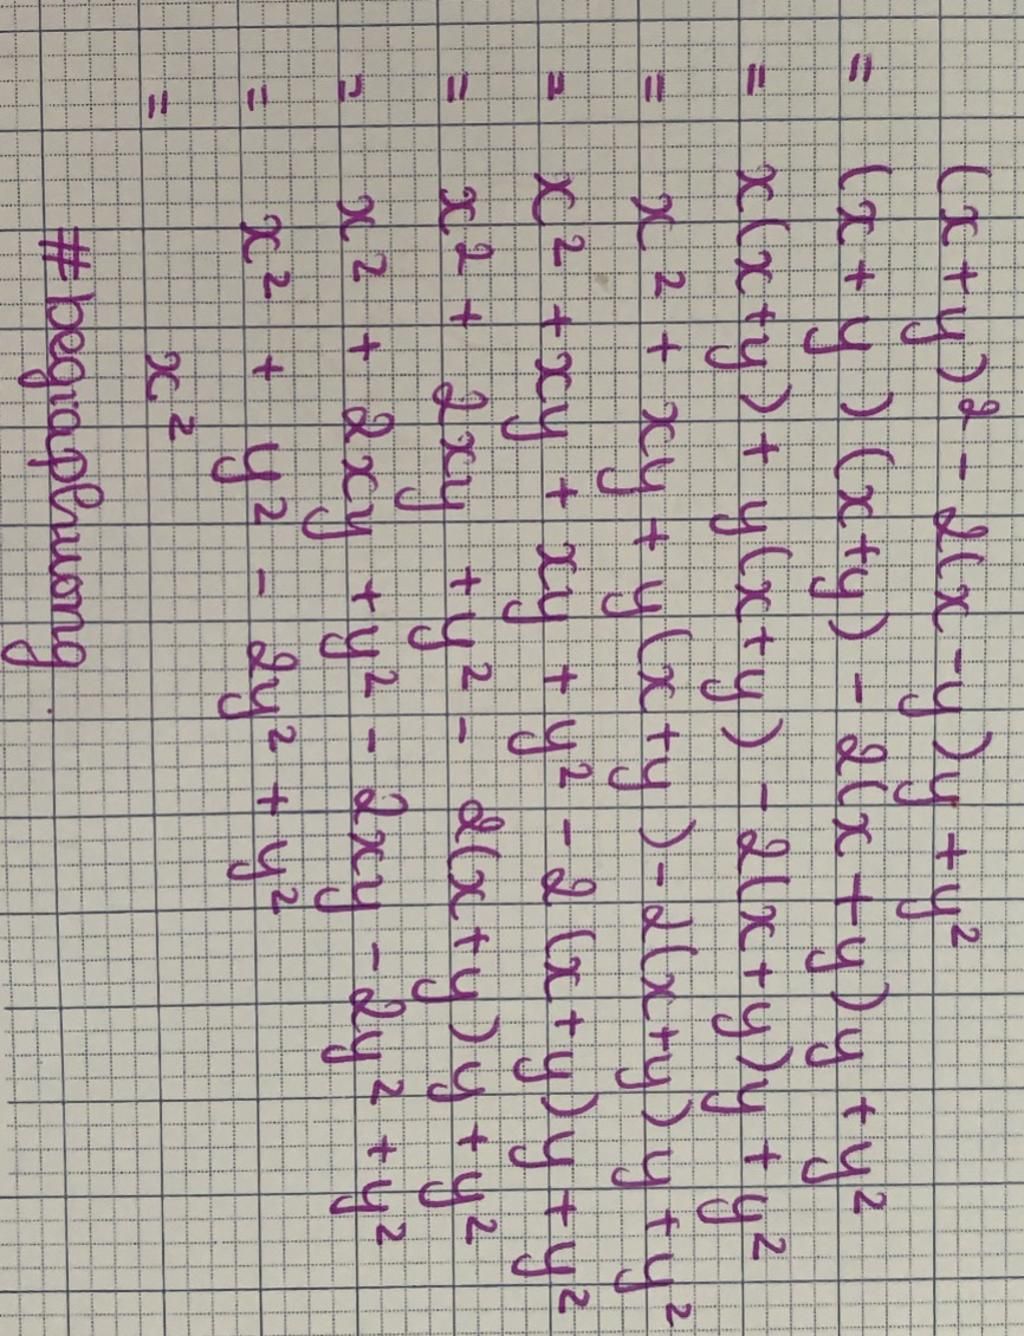 (x+y)² - 2(x-y)y + y²
= (x+y)(x+y) - 2(x+y)y + y²
= x(x+y) + y(x+y) - 2(x+y)y + y²
= x² + xy + y(x+y) - 2(x+y)y + y²
= x² + xy + xy + y² - 2(x+y)y + y²
= x² + 2xy + y² - 2(x+y)y + y²
= x² + 2xy + y² - 2xy - 2y² + y²
= x² + y² - 2y² + y²
= x²
#begraphuong